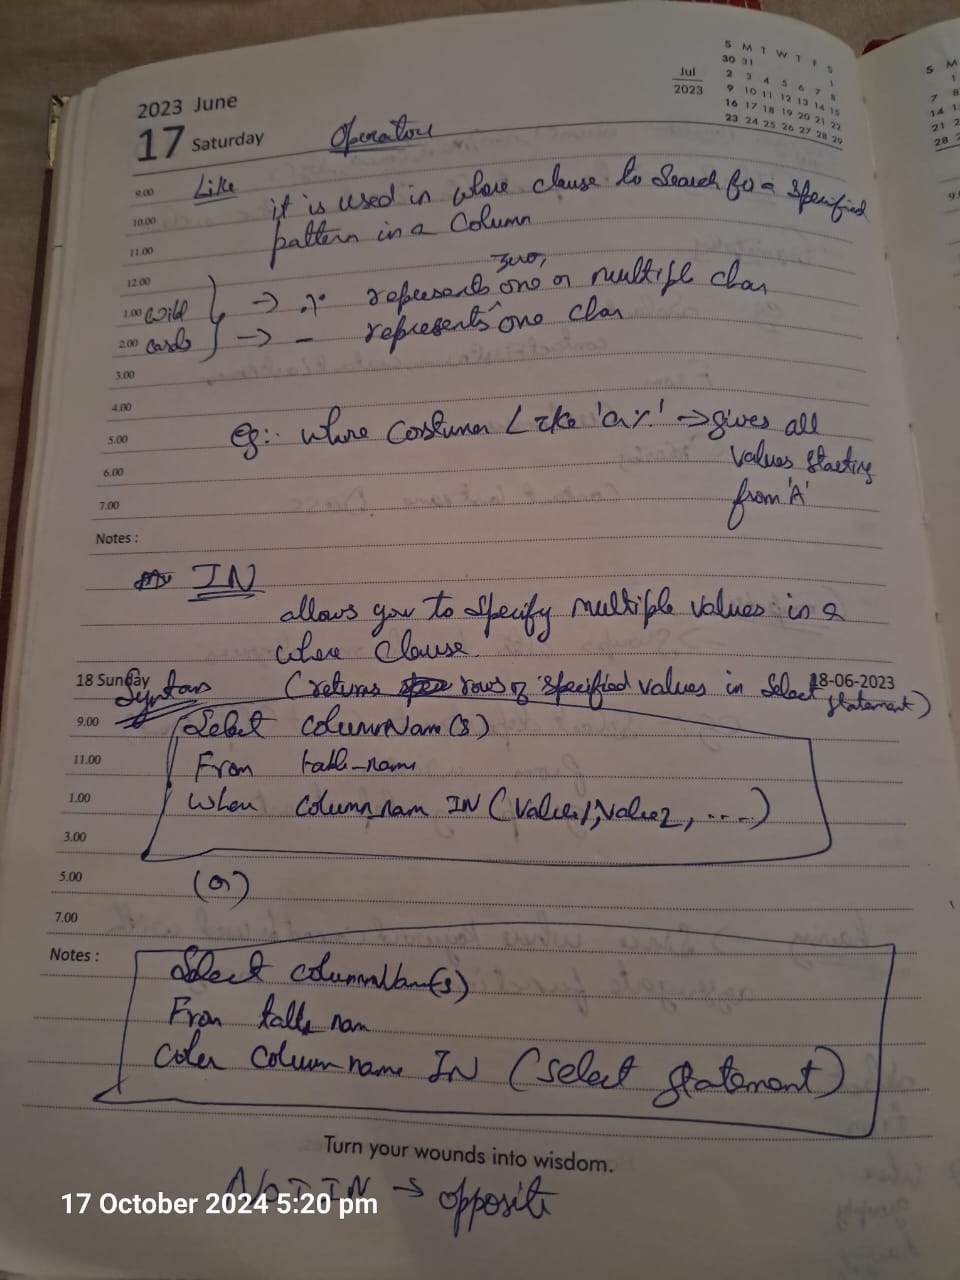 2023 June
17 Saturday
Operators
Jul
2023
S M T W T F S
30 31 1
2 3 4 5 6 7 8
9 10 11 12 13 14 15
16 17 18 19 20 21 22
23 24 25 26 27 28 29
9.00 Like it is used in where clause to Search for a Specified
10.00 pattern in a Column
11.00
zero,
12.00 → % represents one or multiple char
1.00 Wild
2.00 cards → _ represents one char
3.00
4.00
5.00 Eg:- where Costumer Like 'a%' → gives all
6.00 values starting
7.00 from 'A'
Notes :
IN
allows you to specify multiple values in a
where clause.
18 Sunday 18-06-2023
Syntax (returns rows of specified values in Select statement)
9.00 Select columnName(s)
11.00 From table_name
1.00 When column_nam IN (Value1, Value2, ....)
3.00
5.00 (or)
7.00
Notes :
Select columnName(s)
From table nam
column name IN (select statement)
Turn your wounds into wisdom.
NOT IN → opposite
17 October 2024 5:20 pm
S M
1
7 8
14 1
21 2
28
9.